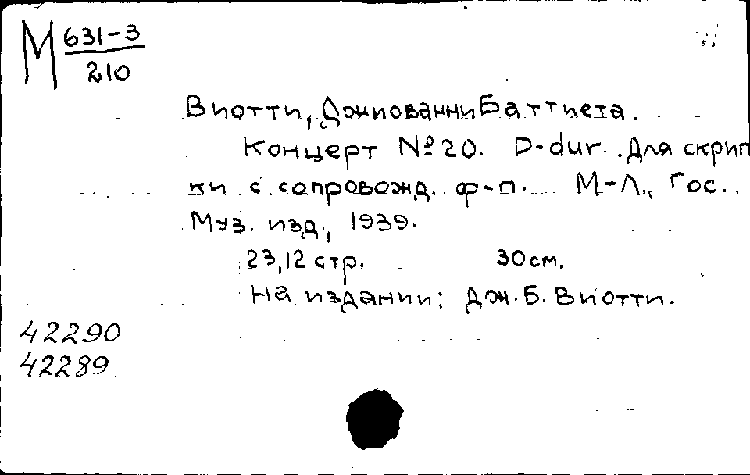 М 631-3
210
Виотти, Джиованни Баттиста.
Концерт № 20. D-dur. Для скрип
ки с сопровожд. ф-п. М-Л., Гос.
Муз. изд., 1939.
23,12 стр. 30 см.
На издании: Дж. Б. Виотти.
42290
42289